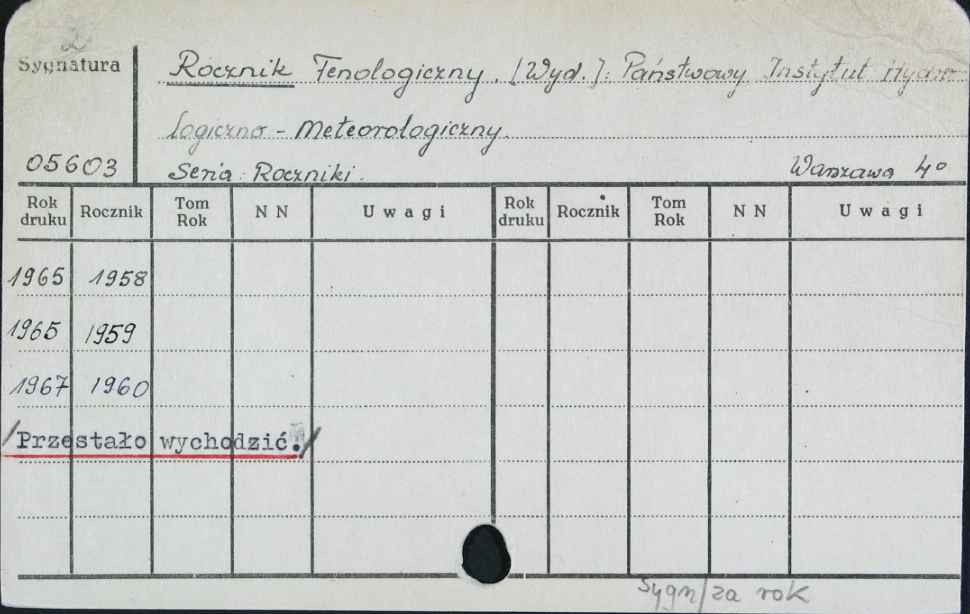 Sygnatura
Rocznik Fenologiczny. [Wyd.]: Państwowy Instytut Hydro
logiczno - Meteorologiczny.
05603
Seria: Roczniki.
Warszawa 4°
Rok druku Rocznik Tom Rok N N Uwagi Rok druku Rocznik Tom Rok N N Uwagi
1965 1958
1965 1959
1967 1960
/Przestało wychodzić./
Sygn/za rok